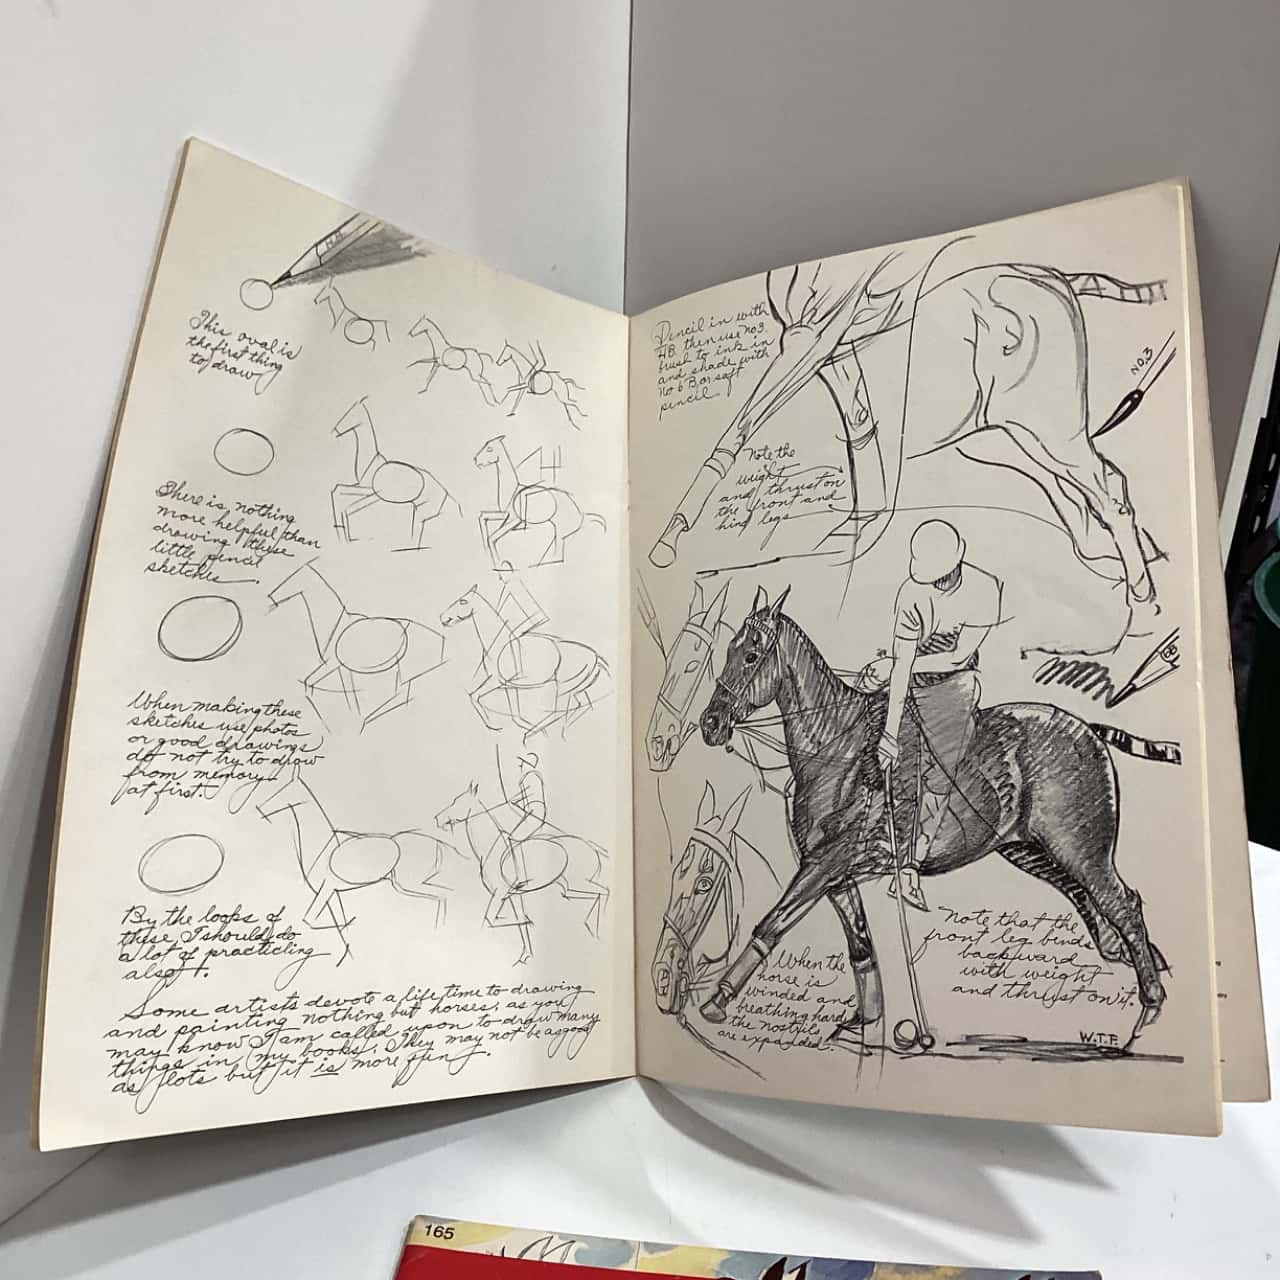 This oval is
the first thing
to draw
There is nothing
more helpful than
drawing these
little pencil
sketches.
When making these
sketches use photos
or good drawings
do not try to draw
from memory
at first.
By the looks of
these I should do
a lot of practicing
also!
Some artists devote a life time to drawing
and painting nothing but horses; as you
may know I am called upon to draw many
things in my books. They may not be as good
as lots but it is more fun.
Pencil in with
HB then use No 3.
brush to ink in
and shade with
No 6 B or soft
pencil
NO.3
Note the
weight
and thrust on
the front and
hind legs
6B
Note that the
front leg bends
backward
with weight
and thrust on it.
When the
horse is
winded and
breathing hard
the nostrils
are expanded.
W.T.F.
165